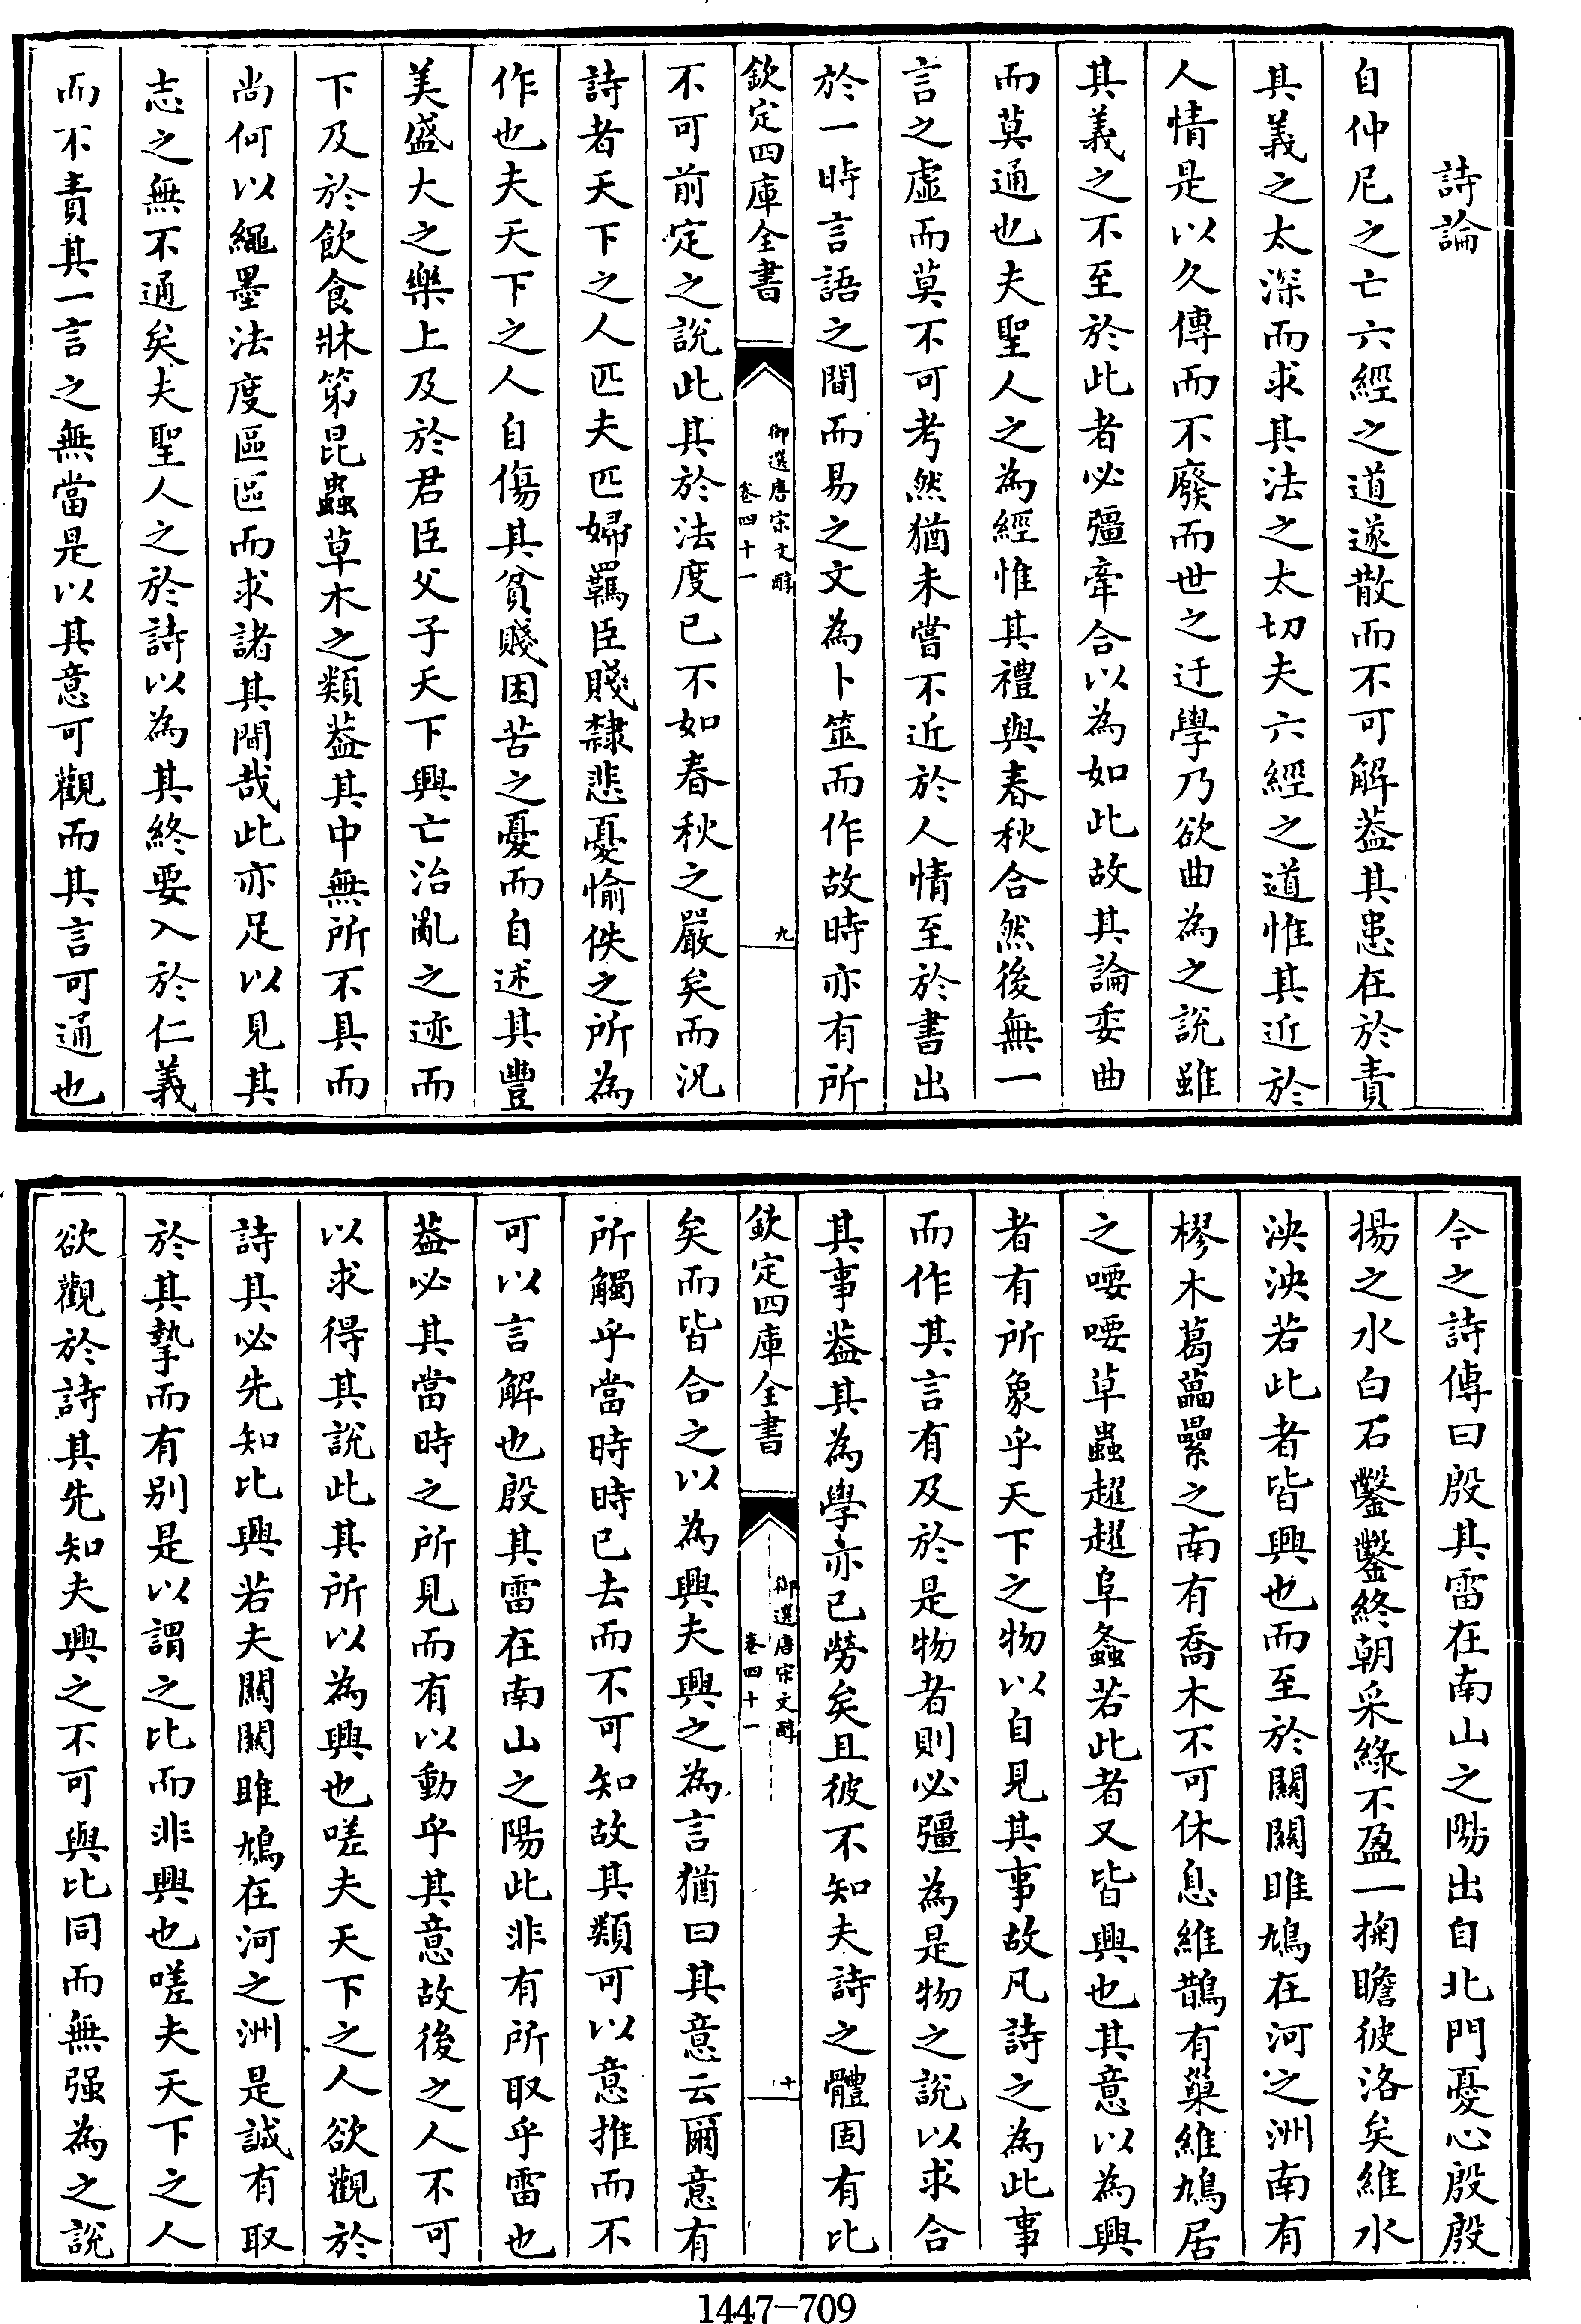 詩論
自仲尼之亡六經之道遂散而不可解葢其患在於責
其義之太深而求其法之太切夫六經之道惟其近於
人情是以久傳而不廢而世之迂學乃欲曲為之說雖
其義之不至於此者必彊牽合以為如此故其論委曲
而莫通也夫聖人之為經惟其禮與春秋合然後無一
言之虛而莫不可考然猶未嘗不近於人情至於書出
於一時言語之間而易之文為卜筮而作故時亦有所
欽定四庫全書
御選唐宋文醇
卷四十一
九
不可前定之說此其於法度已不如春秋之嚴矣而況
詩者天下之人匹夫匹婦羈臣賤隸悲憂愉佚之所為
作也夫天下之人自傷其貧賤困苦之憂而自述其豐
美盛大之樂上及於君臣父子天下興亡治亂之迹而
下及於飲食牀笫昆蟲草木之類葢其中無所不具而
尚何以繩墨法度區區而求諸其間哉此亦足以見其
志之無不通矣夫聖人之於詩以為其終要入於仁義
而不責其一言之無當是以其意可觀而其言可通也
今之詩傳曰殷其雷在南山之陽出自北門憂心殷殷
揚之水白石鑿鑿終朝采綠不盈一掬瞻彼洛矣維水
泱泱若此者皆興也而至於關關雎鳩在河之洲南有
樛木葛藟纍之南有喬木不可休息維鵲有巢維鳩居
之喓喓草蟲趯趯阜螽若此者又皆興也其意以為興
者有所象乎天下之物以自見其事故凡詩之為此事
而作其言有及於是物者則必彊為是物之說以求合
其事葢其為學亦已勞矣且彼不知夫詩之體固有比
欽定四庫全書
御選唐宋文醇
卷四十一
十
矣而皆合之以為興夫興之為言猶曰其意云爾意有
所觸乎當時時已去而不可知故其類可以意推而不
可以言解也殷其雷在南山之陽此非有所取乎雷也
葢必其當時之所見而有以動乎其意故後之人不可
以求得其說此其所以為興也嗟夫天下之人欲觀於
詩其必先知比興若夫關關雎鳩在河之洲是誠有取
於其摯而有別是以謂之比而非興也嗟夫天下之人
欲觀於詩其先知夫興之不可與比同而無强為之說
1447-709